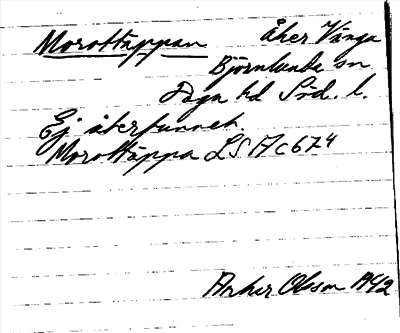 Morottäppan åker Vänga
Björnlunda sn
Daga hd Söd. l.
Ej återfunnet.
Morottäppa LSA C67 4
Arker Olsson A42